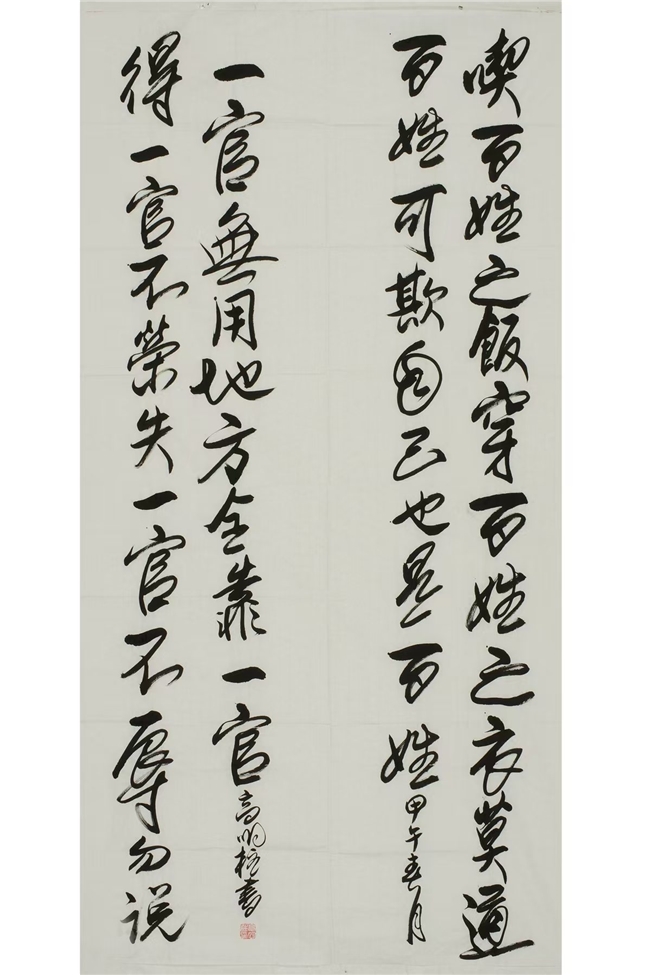 喫百姓之飯穿百姓之衣莫道
百姓可欺自己也是百姓
甲午春月
得一官不榮失一官不辱勿说
一官無用地方全靠一官
高明書